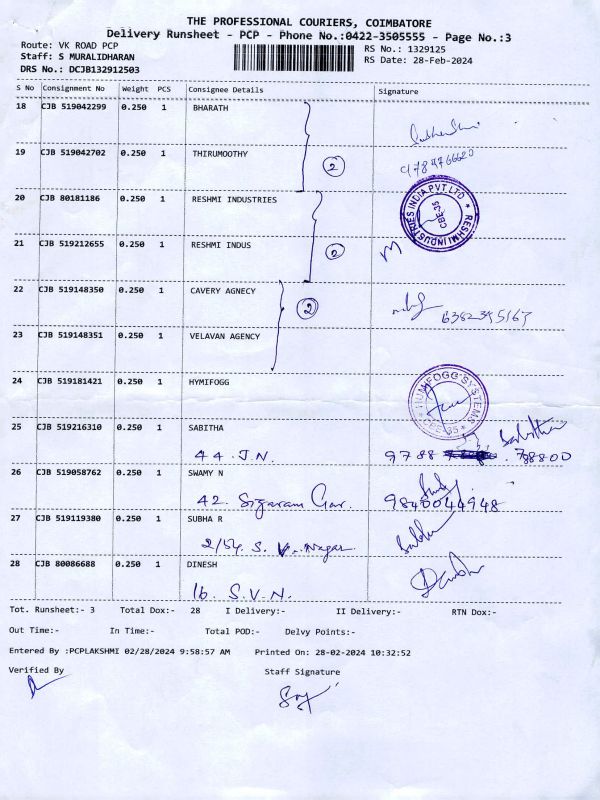 THE PROFESSIONAL COURIERS, COIMBATORE
Delivery Runsheet - PCP - Phone No.:0422-3505555 - Page No.:3
Route: VK ROAD PCP
RS No.: 1329125
Staff: S MURALIDHARAN
RS Date: 28-Feb-2024
DRS No.: DCJB132912503
S No Consignment No Weight PCS Consignee Details Signature
18 CJB 519042299 0.250 1 BHARATH
19 CJB 519042702 0.250 1 THIRUMOOTHY
2
9784766620
20 CJB 80181186 0.250 1 RESHMI INDUSTRIES
RESHMI INDUSTRIES INDIA PVT LTD
CBE-35
21 CJB 519212655 0.250 1 RESHMI INDUS
2
22 CJB 519148350 0.250 1 CAVERY AGNECY
2
6382395167
23 CJB 519148351 0.250 1 VELAVAN AGENCY
24 CJB 519181421 0.250 1 HYMIFOGG
HUMIFOGG SYSTEMS
CBE-35
25 CJB 519216310 0.250 1 SABITHA
Sabitha
44. J.N. 9788 788800
26 CJB 519058762 0.250 1 SWAMY N
42. 9840044948
27 CJB 519119380 0.250 1 SUBHA R
2/54. S. V. Nagar
28 CJB 80086688 0.250 1 DINESH
16. S.V.N.
Tot. Runsheet:- 3 Total Dox:- 28 I Delivery:- II Delivery:- RTN Dox:-
Out Time:- In Time:- Total POD:- Delvy Points:-
Entered By :PCPLAKSHMI 02/28/2024 9:58:57 AM Printed On: 28-02-2024 10:32:52
Verified By Staff Signature